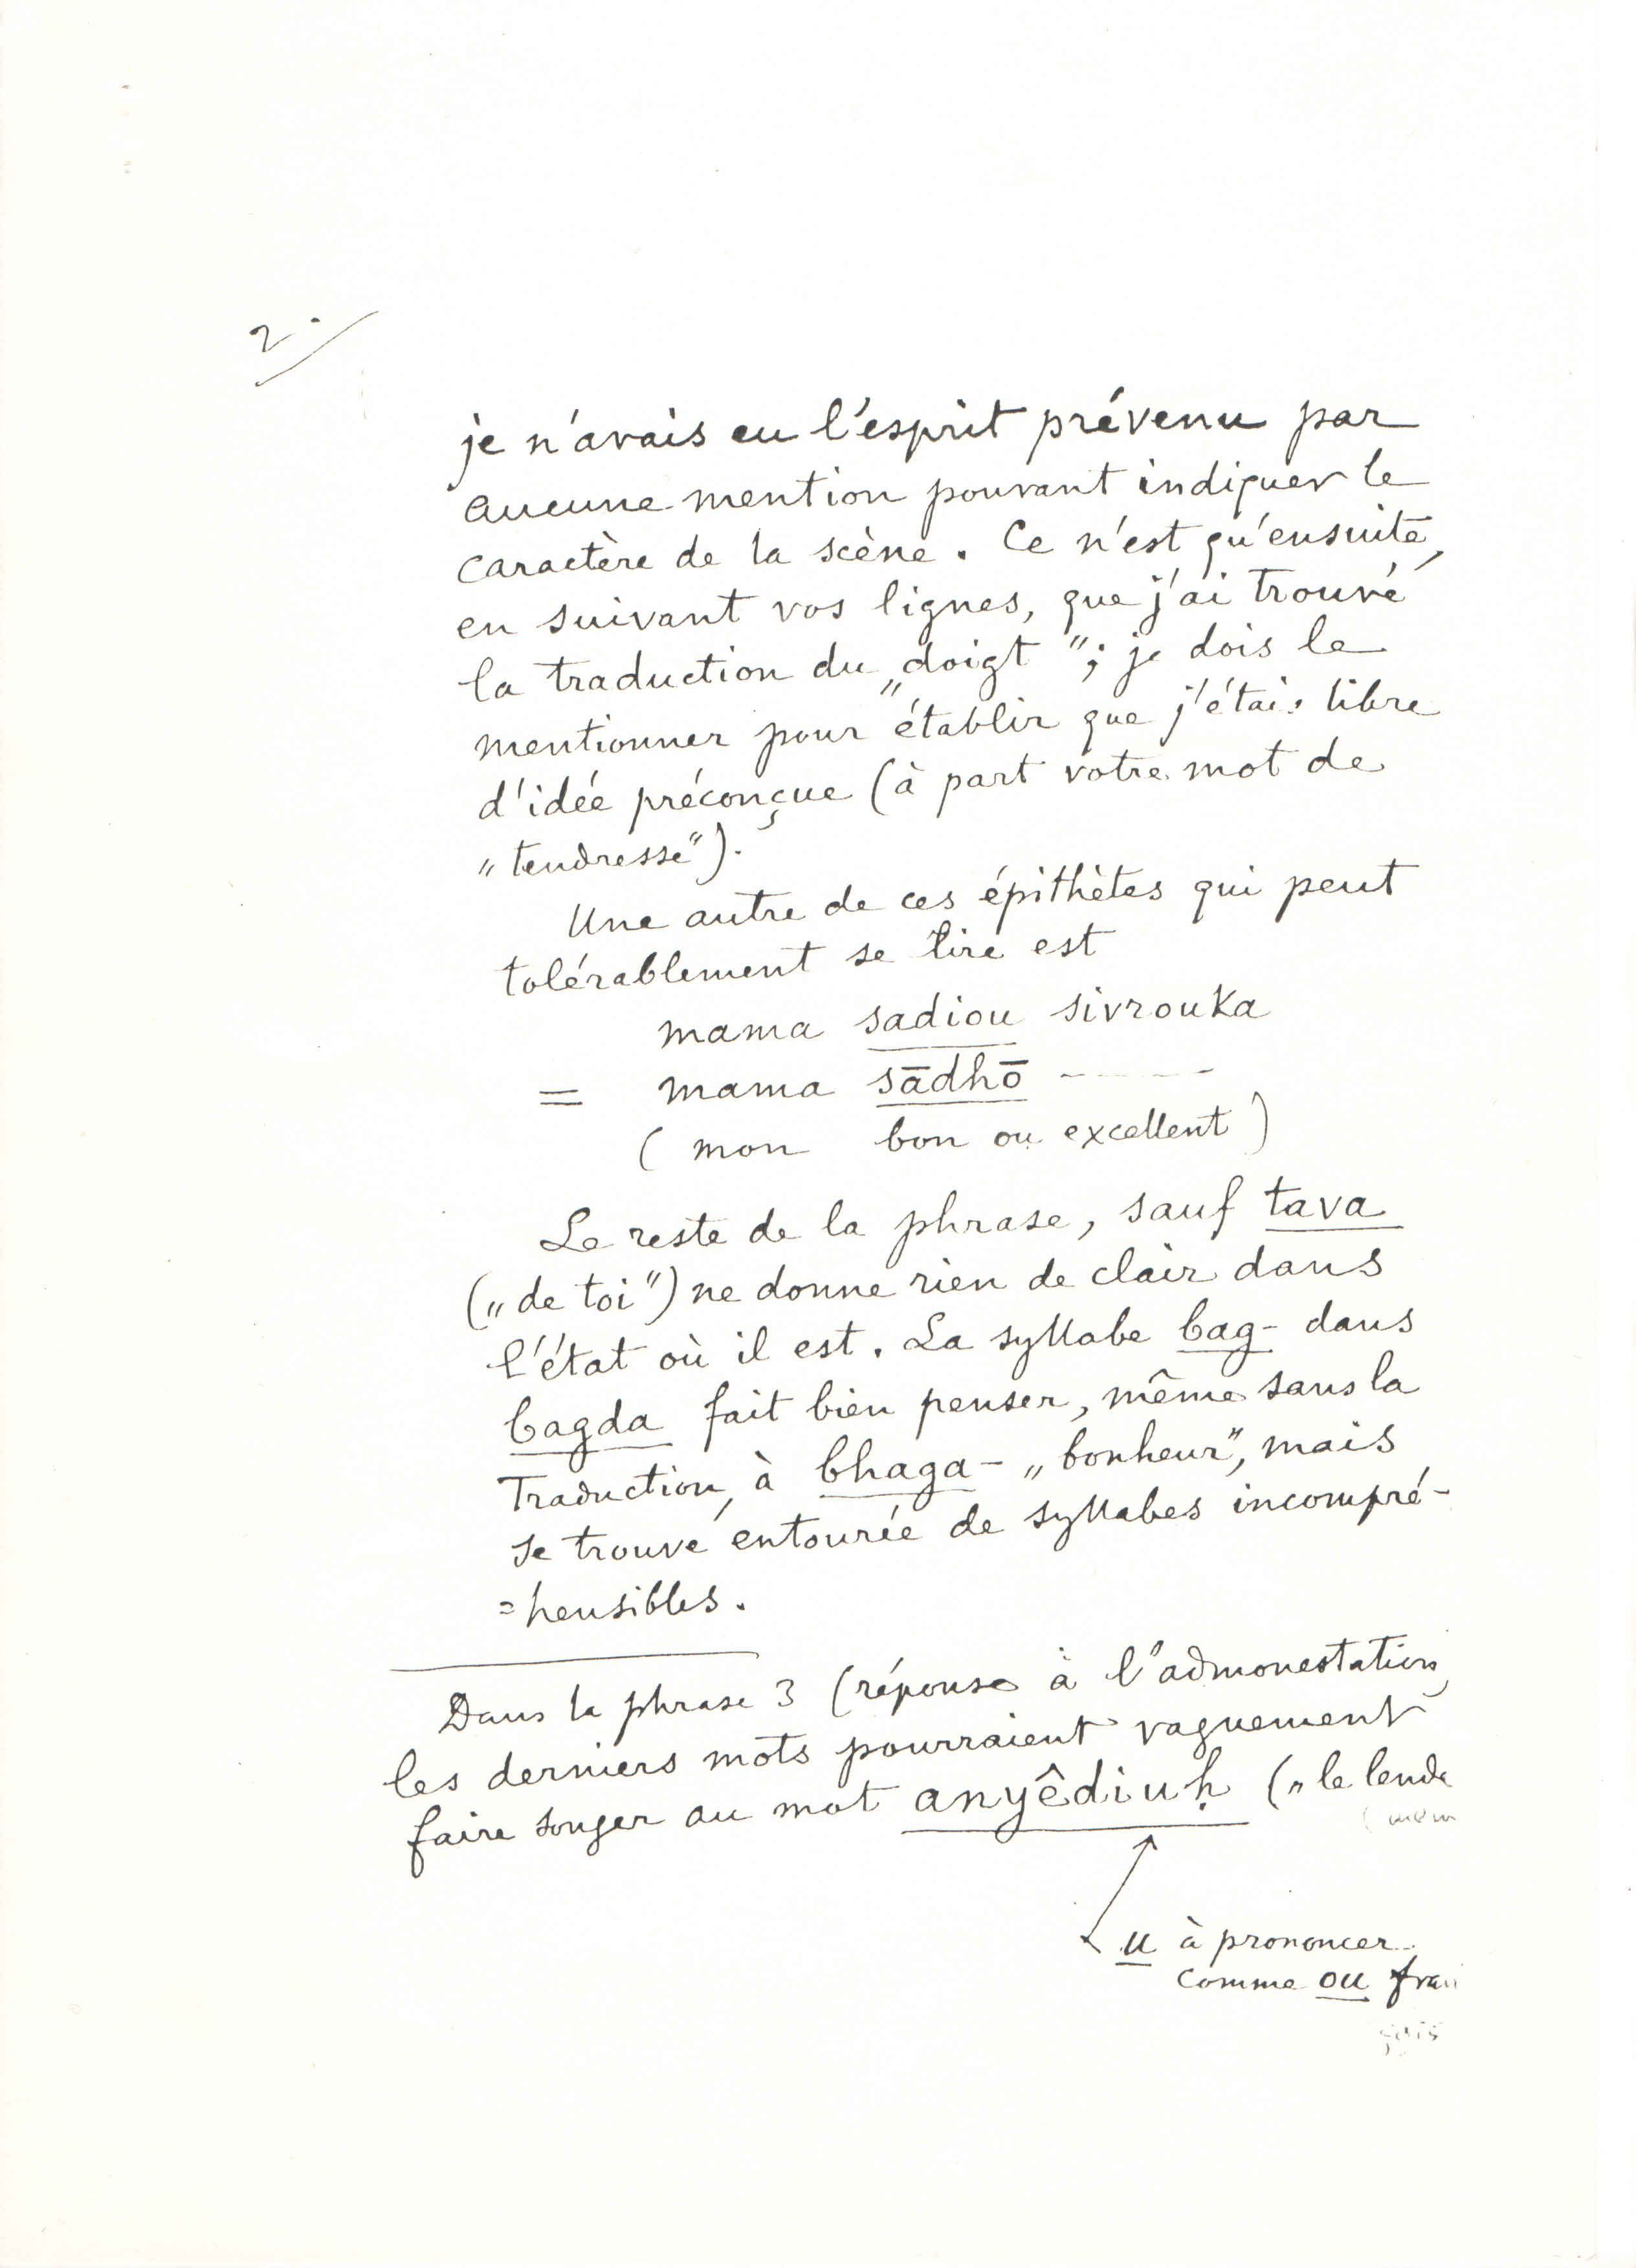 2.
je n'avais eu l'esprit prévenu par
aucune mention pouvant indiquer le
caractère de la scène. Ce n'est qu'ensuite,
en suivant vos lignes, que j'ai trouvé
la traduction du „doigt"; je dois le
mentionner pour établir que j'étais libre
d'idée préconçue (à part votre mot de
„tendresse").
Une autre de ces épithètes qui peut
tolérablement se lire est
mama sadiou sivrouka
= mama sādhō - - - - -
( mon bon ou excellent )
Le reste de la phrase, sauf tava
(„de toi") ne donne rien de clair dans
l'état où il est. La syllabe bag- dans
bagda fait bien penser, même sans la
traduction, à bhaga- „bonheur", mais
se trouve entourée de syllabes incompré-
=hensibles.
Dans la phrase 3 (réponse à l'admonestation)
les derniers mots pourraient vaguement
faire songer au mot anyêdiuḥ („le lende
u à prononcer
comme ou fran
çais